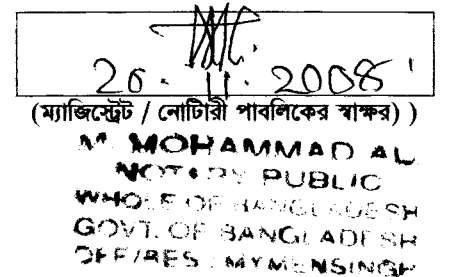 20.11.2008
(ম্যাজিস্ট্রেট / নোটারী পাবলিকের স্বাক্ষর) )
M. MOHAMMAD AL
NOTARY PUBLIC
WHOLE OF BANGLADESH
GOVT. OF BANGLADESH
OFF/RES : MYMENSINGH